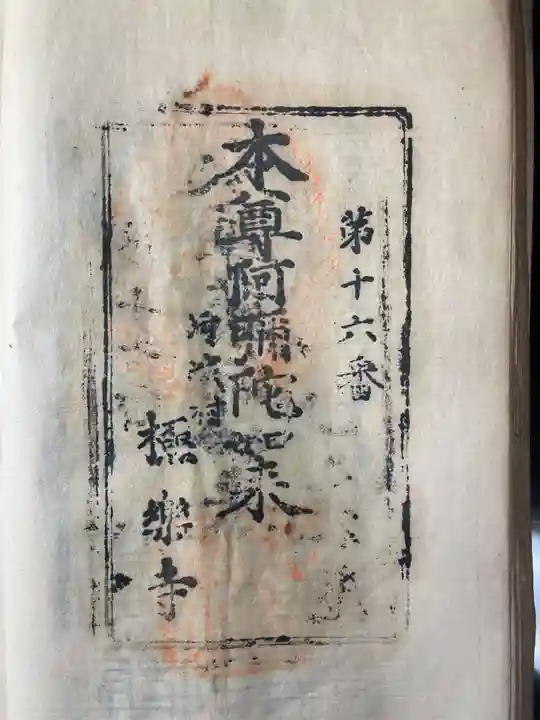 第十六番
本尊阿彌陀如来
極樂寺